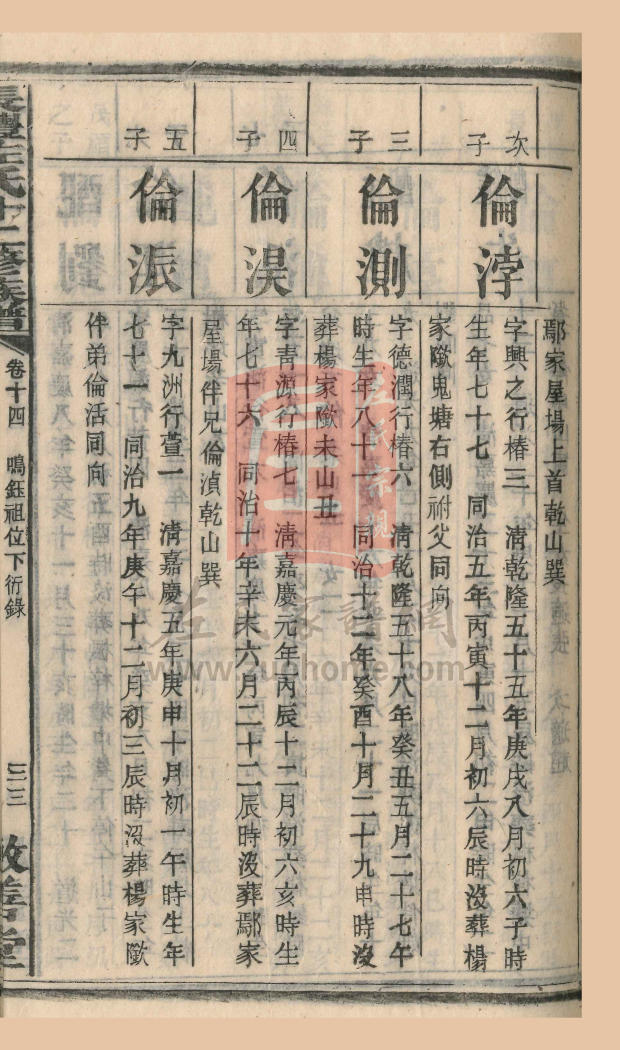 鄢家屋場上首乾山巽
次子
倫浡
字興之行椿三　清乾隆五十五年庚戌八月初六子時
生年七十七　同治五年丙寅十二月初六辰時沒葬楊
家隞鬼塘右側祔父同向
三子
倫測
字德潤行椿六　清乾隆五十八年癸丑五月二十七午
時生年八十一　同治十二年癸酉十月二十九申時沒
葬楊家隞未山丑
四子
倫淏
字靑源行椿七　清嘉慶元年丙辰十二月初六亥時生
年七十六　同治十年辛未六月二十二辰時沒葬鄢家
屋場伴兄倫湞乾山巽
五子
倫浱
字九洲行萱一　清嘉慶五年庚申十月初一午時生年
七十一　同治九年庚午十二月初三辰時沒葬楊家隞
伴弟倫活同向
左氏十二修族譜
卷十四　鳴鈺祖位下衍錄
三三
敦善堂
左氏宗親
左氏家譜網
www.zuohome.com